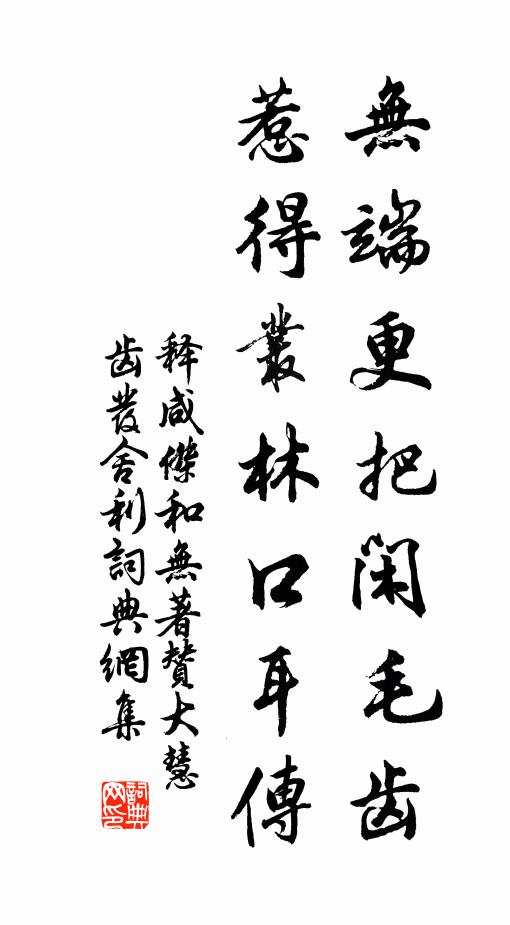 無端更把閑毛齿
惹得叢林口耳傳
释咸傑和無著贊大慧
齿發舍利詞典網集
詞典网印